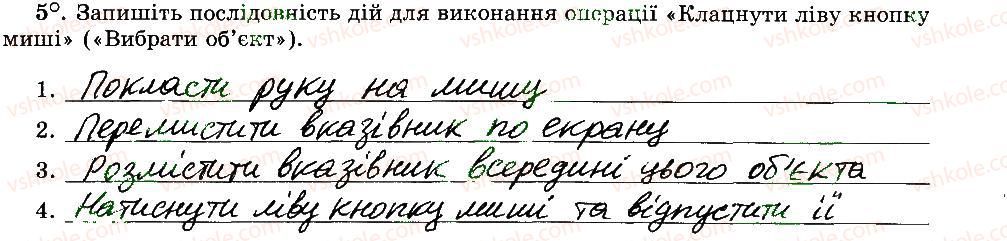 5°. Запишіть послідовність дій для виконання операції «Клацнути ліву кнопку
миші» («Вибрати об’єкт»).
1. Покласти руку на мишу
2. Перемистити вказівник по екрану
3. Розмістити вказівник всередині цього об'єкта
4. Натиснути ліву кнопку миші та відпустити її